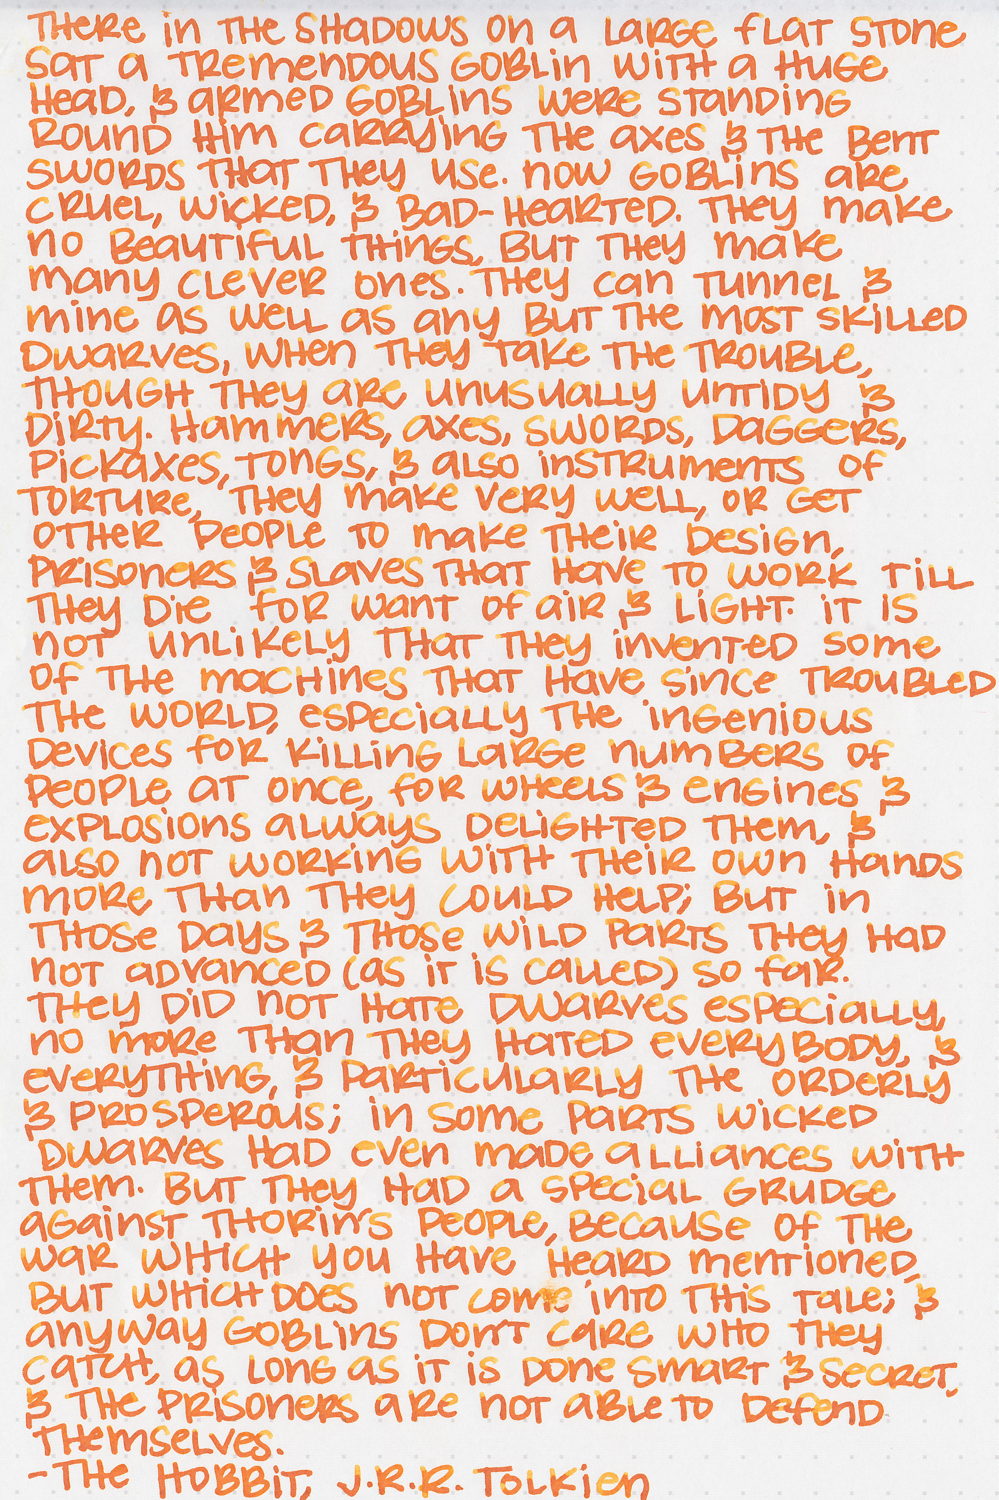 There in the shadows on a large flat stone
sat a tremendous goblin with a huge
head, & armed goblins were standing
round him carrying the axes & the bent
swords that they use. Now goblins are
cruel, wicked, & bad-hearted. They make
no beautiful things, but they make
many clever ones. They can tunnel &
mine as well as any but the most skilled
dwarves, when they take the trouble,
though they are unusually untidy &
dirty. Hammers, axes, swords, daggers,
pickaxes, tongs, & also instruments of
torture, they make very well, or get
other people to make their design,
prisoners & slaves that have to work till
they die for want of air & light. It is
not unlikely that they invented some
of the machines that have since troubled
the world, especially the ingenious
devices for killing large numbers of
people at once, for wheels & engines &
explosions always delighted them, &
also not working with their own hands
more than they could help; but in
those days & those wild parts they had
not advanced (as it is called) so far.
They did not hate dwarves especially,
no more than they hated everybody, &
everything, & particularly the orderly
& prosperous; in some parts wicked
dwarves had even made alliances with
them. But they had a special grudge
against Thorin's people, because of the
war which you have heard mentioned,
but which does not come into this tale; &
anyway goblins don't care who they
catch, as long as it is done smart & secret,
& the prisoners are not able to defend
themselves.
-The Hobbit, J.R.R. Tolkien